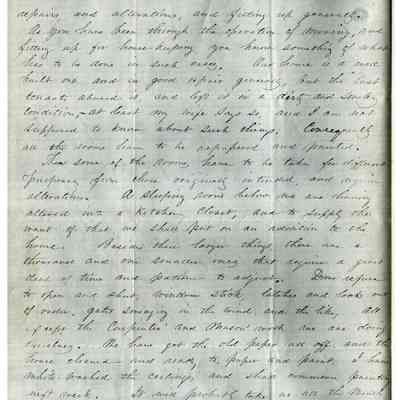 repairs, and alterations, and fitting up generally.
As you have been through the operation of moving, and
fitting up for house-keeping you know something of what
has to be done in such cases. Our house is a well
built one and in good repair generally, but the last
tenants abused it and left it in a dirty and smoky
condition, - at least my wife says so, and I am not
supposed to know about such things. Consequently
all the rooms have to be repapered and painted.
Then some of the rooms, have to be taken for different
purposes from those originally intended, and require
alterations. A sleeping room below we are having
altered into a Kitchen Closet, and to supply the
want of that we shall put on an addition to the
house. Besides these larger things there are a
thousand and one smaller ones that require a great
deal of time and patience to adjust. Doors refuse
to open and shut, windows stick, latches and locks out
of order, gates swinging in the wind and the like. All
except the Carpenter and Mason work we are doing
ourselves. We have got the old paper all off and the
house cleaned and ready to paper and paint. I have
white-washed the ceilings, and shall commence painting
next week. It will probably take us all the month